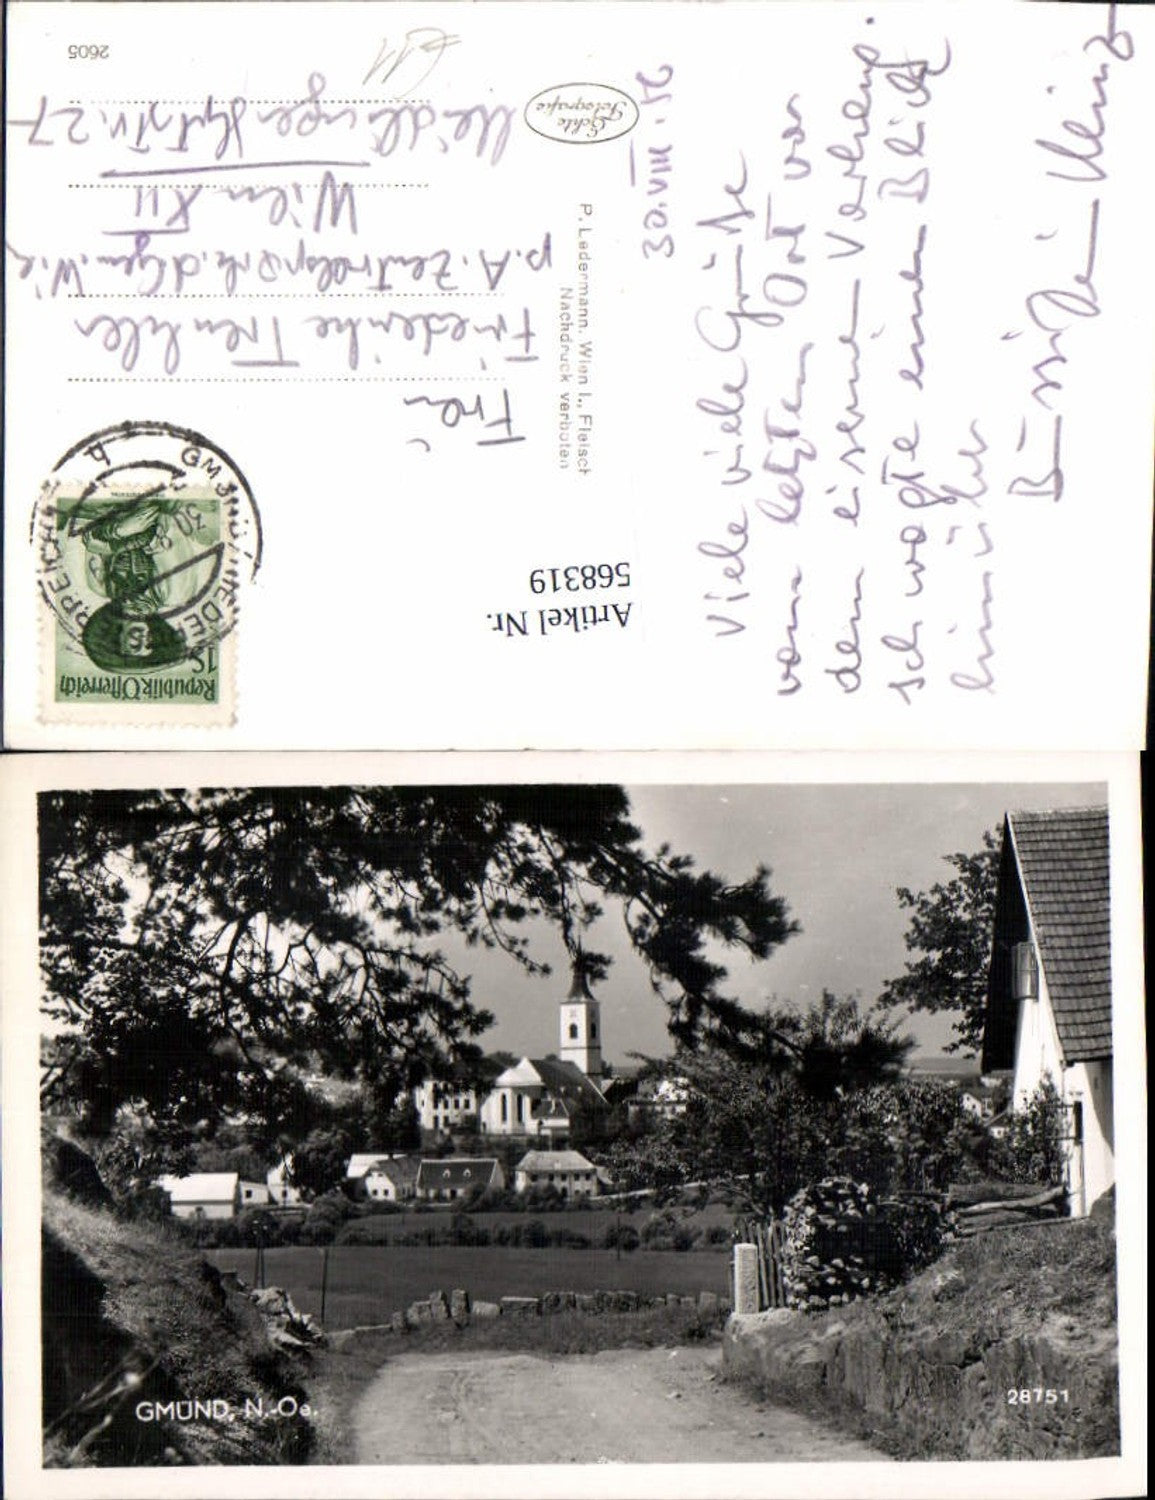 Viele viele Grüße
vom letzten Ort vor
dem eisernen Vorhang.
Ich wagte einen Blick
hinüber
30.VIII.56
P. Ledermann, Wien I., Fleisch
Nachdruck verboten
Echte
Fotografie
Frau
Friederike
p. A.
Wien XII
Meidlinger Hptstr. 27
2605
Republik Österreich
1S
GMÜND
30
Artikel Nr.
568319
GMÜND, N.-Oe.
28751